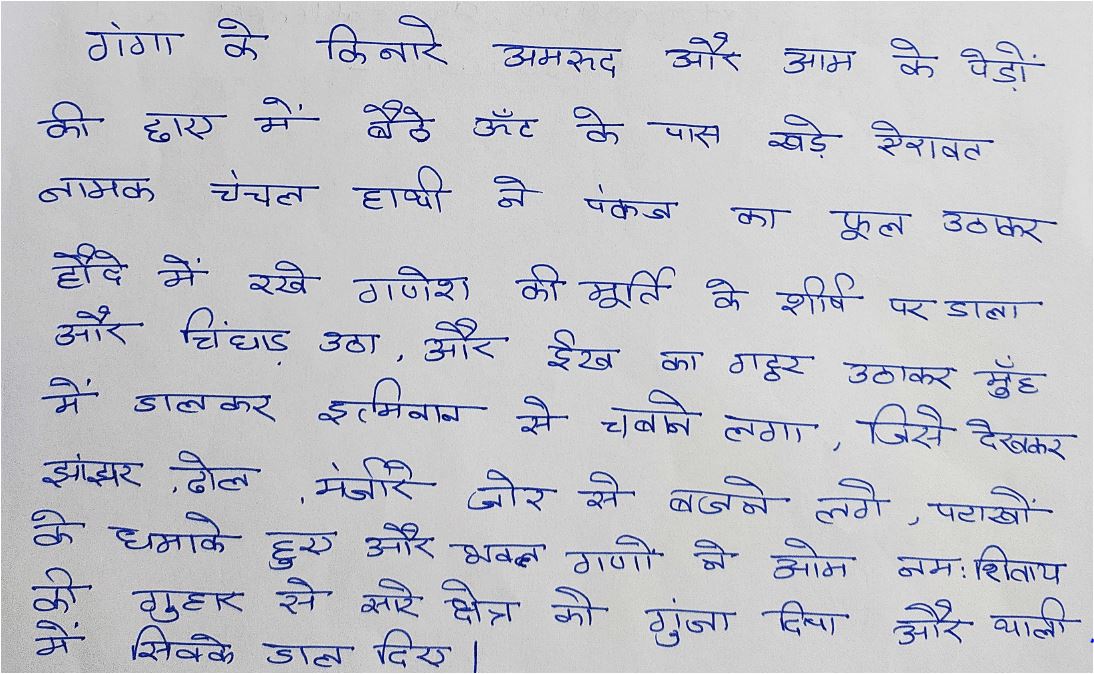 गंगा के किनारे अमरुद और आम के पेड़ों
की छाए में बैठे ऊँट के पास खड़े ऐरावत
नामक चंचल हाथी ने पंकज का फूल उठाकर
हौदे में रखे गणेश की मूर्ति के शीर्ष पर डाला
और चिंघाड़ उठा, और ईख का गट्ठर उठाकर मुँह
में डालकर इत्मिनान से चबाने लगा, जिसे देखकर
झांझर, ढोल, मंजीरे जोर से बजने लगे, पटाखों
के धमाके हुए और भक्त गणों ने ओम नमः शिवाय
की गुहार से सारे क्षेत्र को गुंजा दिया और थाली
में सिक्के डाल दिए।